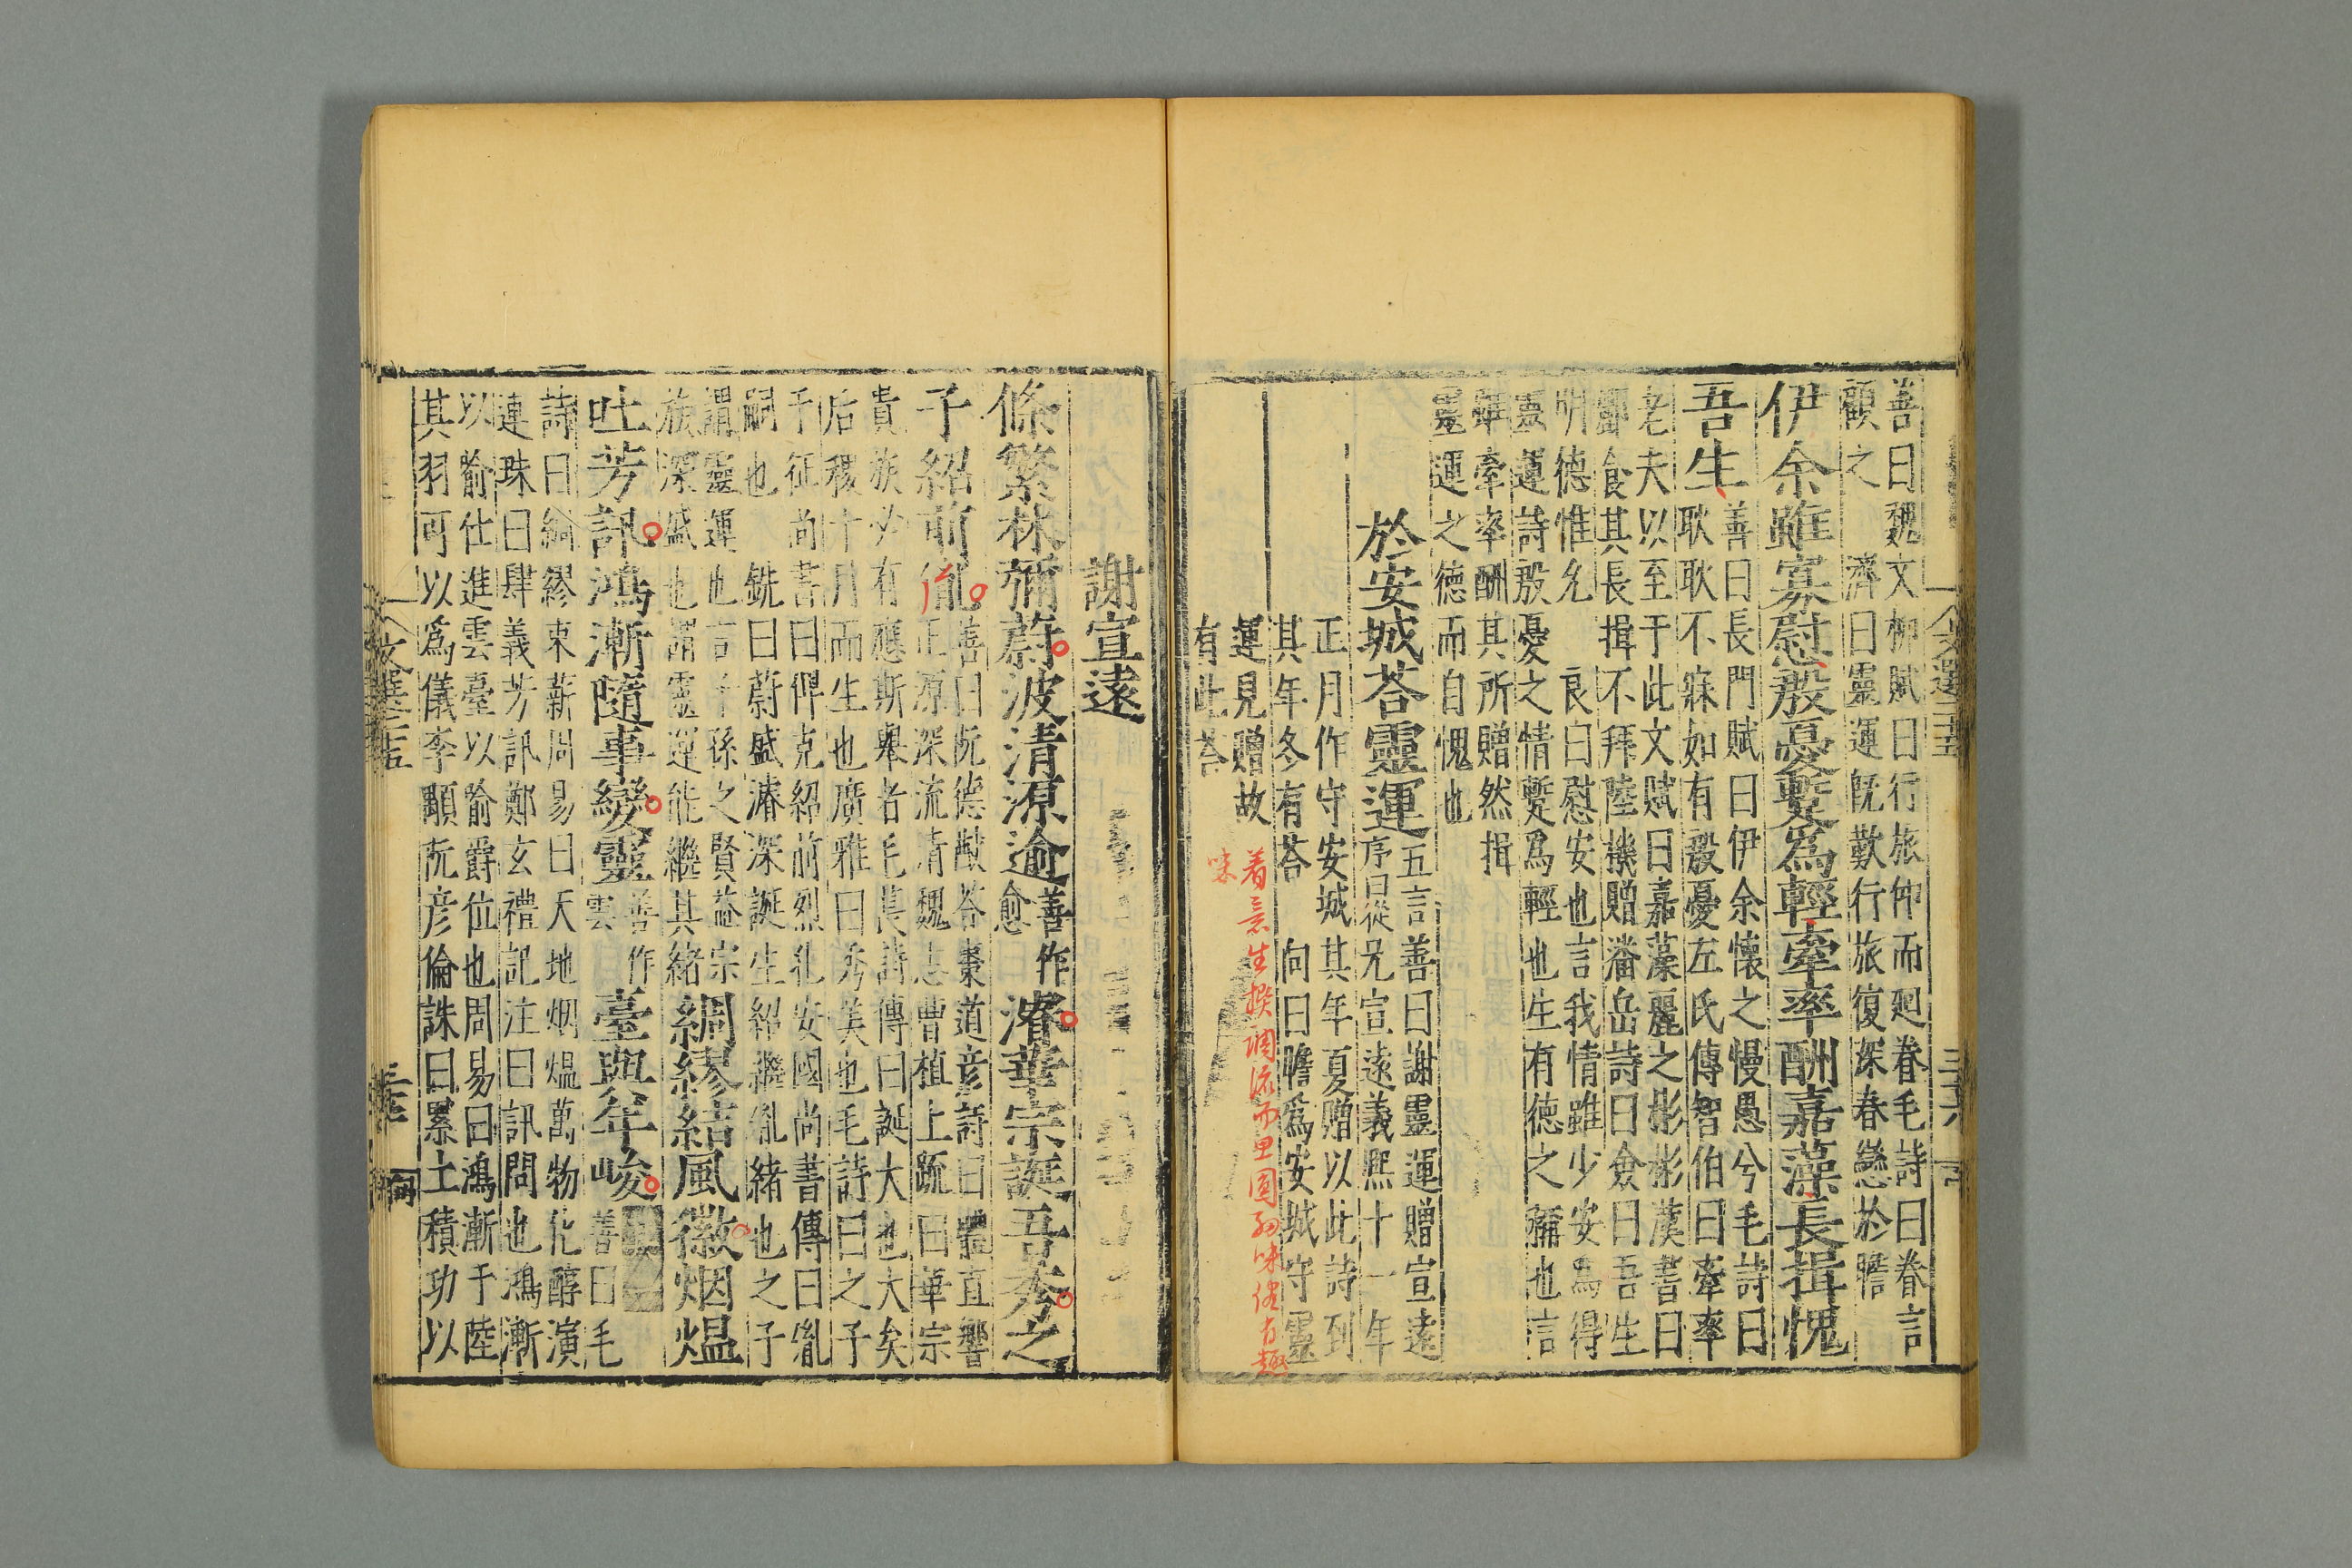 善曰魏文柳賦曰行旅仰而廻眷毛詩曰眷言
顧之　濟曰靈運旣歎行旅復深眷戀於瞻
伊余雖寡慰殷憂暫爲輕牽率酬嘉藻長揖愧
吾生
善曰長門賦曰伊余懷之慢愚兮毛詩曰
耿耿不寐如有殷憂左氏傳智伯曰牽率
老夫以至于此文賦曰嘉藻麗之彬彬漢書曰
酈食其長揖不拜陸機贈潘岳詩曰僉曰吾生
明德惟允　良曰慰安也言我情雖少安爲得
靈運詩殷憂之情暫爲輕也生有德之稱也言
牽率酬其所贈然揖
靈運之德而自愧也
於安城荅靈運
五言善曰謝靈運贈宣遠
序曰從兄宣遠義熙十一年
正月作守安城其年夏贈以此詩到
其年冬有荅　向曰瞻爲安城守靈
運見贈故
有此荅
謝宣遠
條繁林彌蔚波清源逾
善作
愈
濬華宗誕吾秀之
子紹前胤
善曰阮德猷荅棗道彥詩曰體直響
正源深流清魏志曹植上疏曰華宗
貴族必有應斯舉者毛萇詩傳曰誕大也大矣
后稷十月而生也廣雅曰秀美也毛詩曰之子
于征尚書曰俾克紹前烈孔安國尚書傳曰胤
嗣也　銑曰蔚盛濬深誕生紹繼胤緒也之子
謂靈運也言子孫之賢益宗
族深盛也謂靈運能繼其緒
綢繆結風徽烟煴
吐芳訊鴻漸隨事變靈
善作
雲
臺與年峻
善曰毛
詩曰綢繆束薪周易曰天地烟煴萬物化醇演
連珠曰肆義芳訊鄭玄禮記注曰訊問也鴻漸
以喻仕進雲臺以喻爵位也周易曰鴻漸于陸
其羽可以爲儀李顒阮彥倫誄曰累土積功以
文選二十五